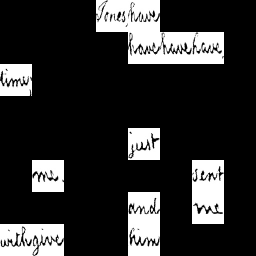 Jones, have
have have have,
time,
just
me. sent
and me
with give him